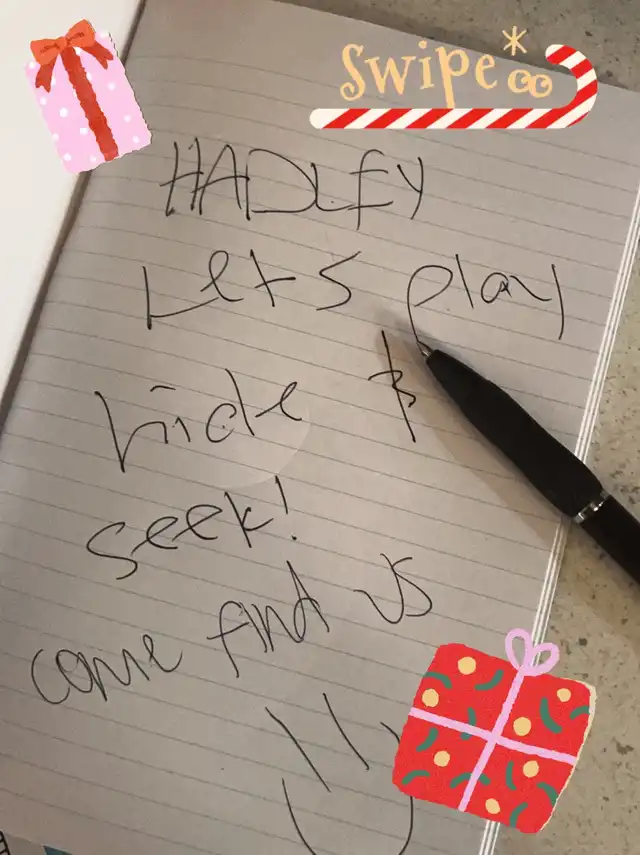 Swipe
HADLEY
Lets play
hide &
seek!
come find us